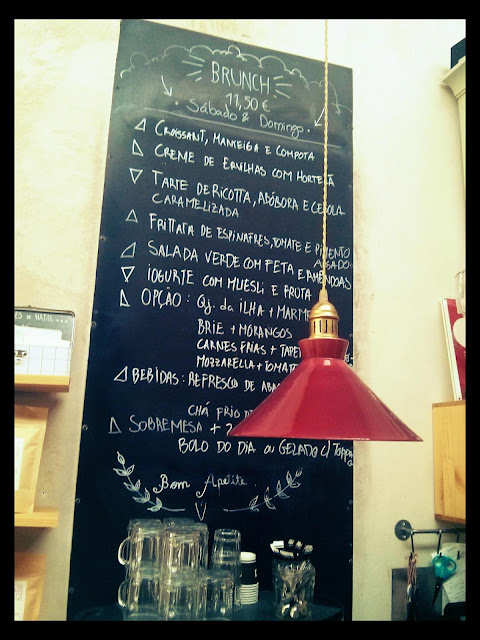 BRUNCH
11,50 €
Sábado & Domingo
CROISSANT, MANTEIGA E COMPOTA
CREME DE ERVILHAS COM HORTELÃ
TARTE DE RICOTTA, ABÓBORA E CEBOLA
CARAMELIZADA
FRITTATA DE ESPINAFRES, TOMATE E PIMENTO
ASSADO
SALADA VERDE COM FETA E AMÊNDOAS
IOGURTE COM MUESLI E FRUTA
OPÇÃO: Qj. da ILHA + MARME
BRIE + MORANGOS
CARNES FRIAS + TAPE
MOZZARELLA + TOMATE
BEBIDAS: REFRESCO DE ABA
CHÁ FRIO
SOBREMESA +
BOLO DO DIA ou GELADO c/ Topping
Bom Apetite